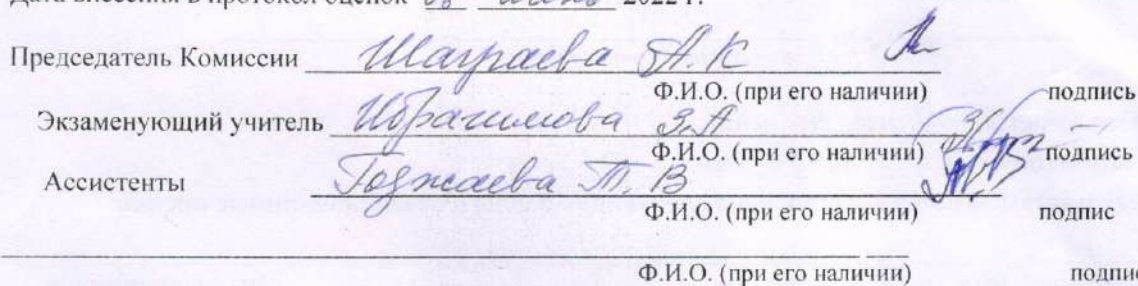 Дата внесения в протокол оценок 2022 г.
Председатель Комиссии Шаграева А.К
Ф.И.О. (при его наличии) подпись
Экзаменующий учитель Ибрагимова З.А
Ф.И.О. (при его наличии) подпись
Ассистенты Годжаева Т.В
Ф.И.О. (при его наличии) подпис
Ф.И.О. (при его наличии) подпис